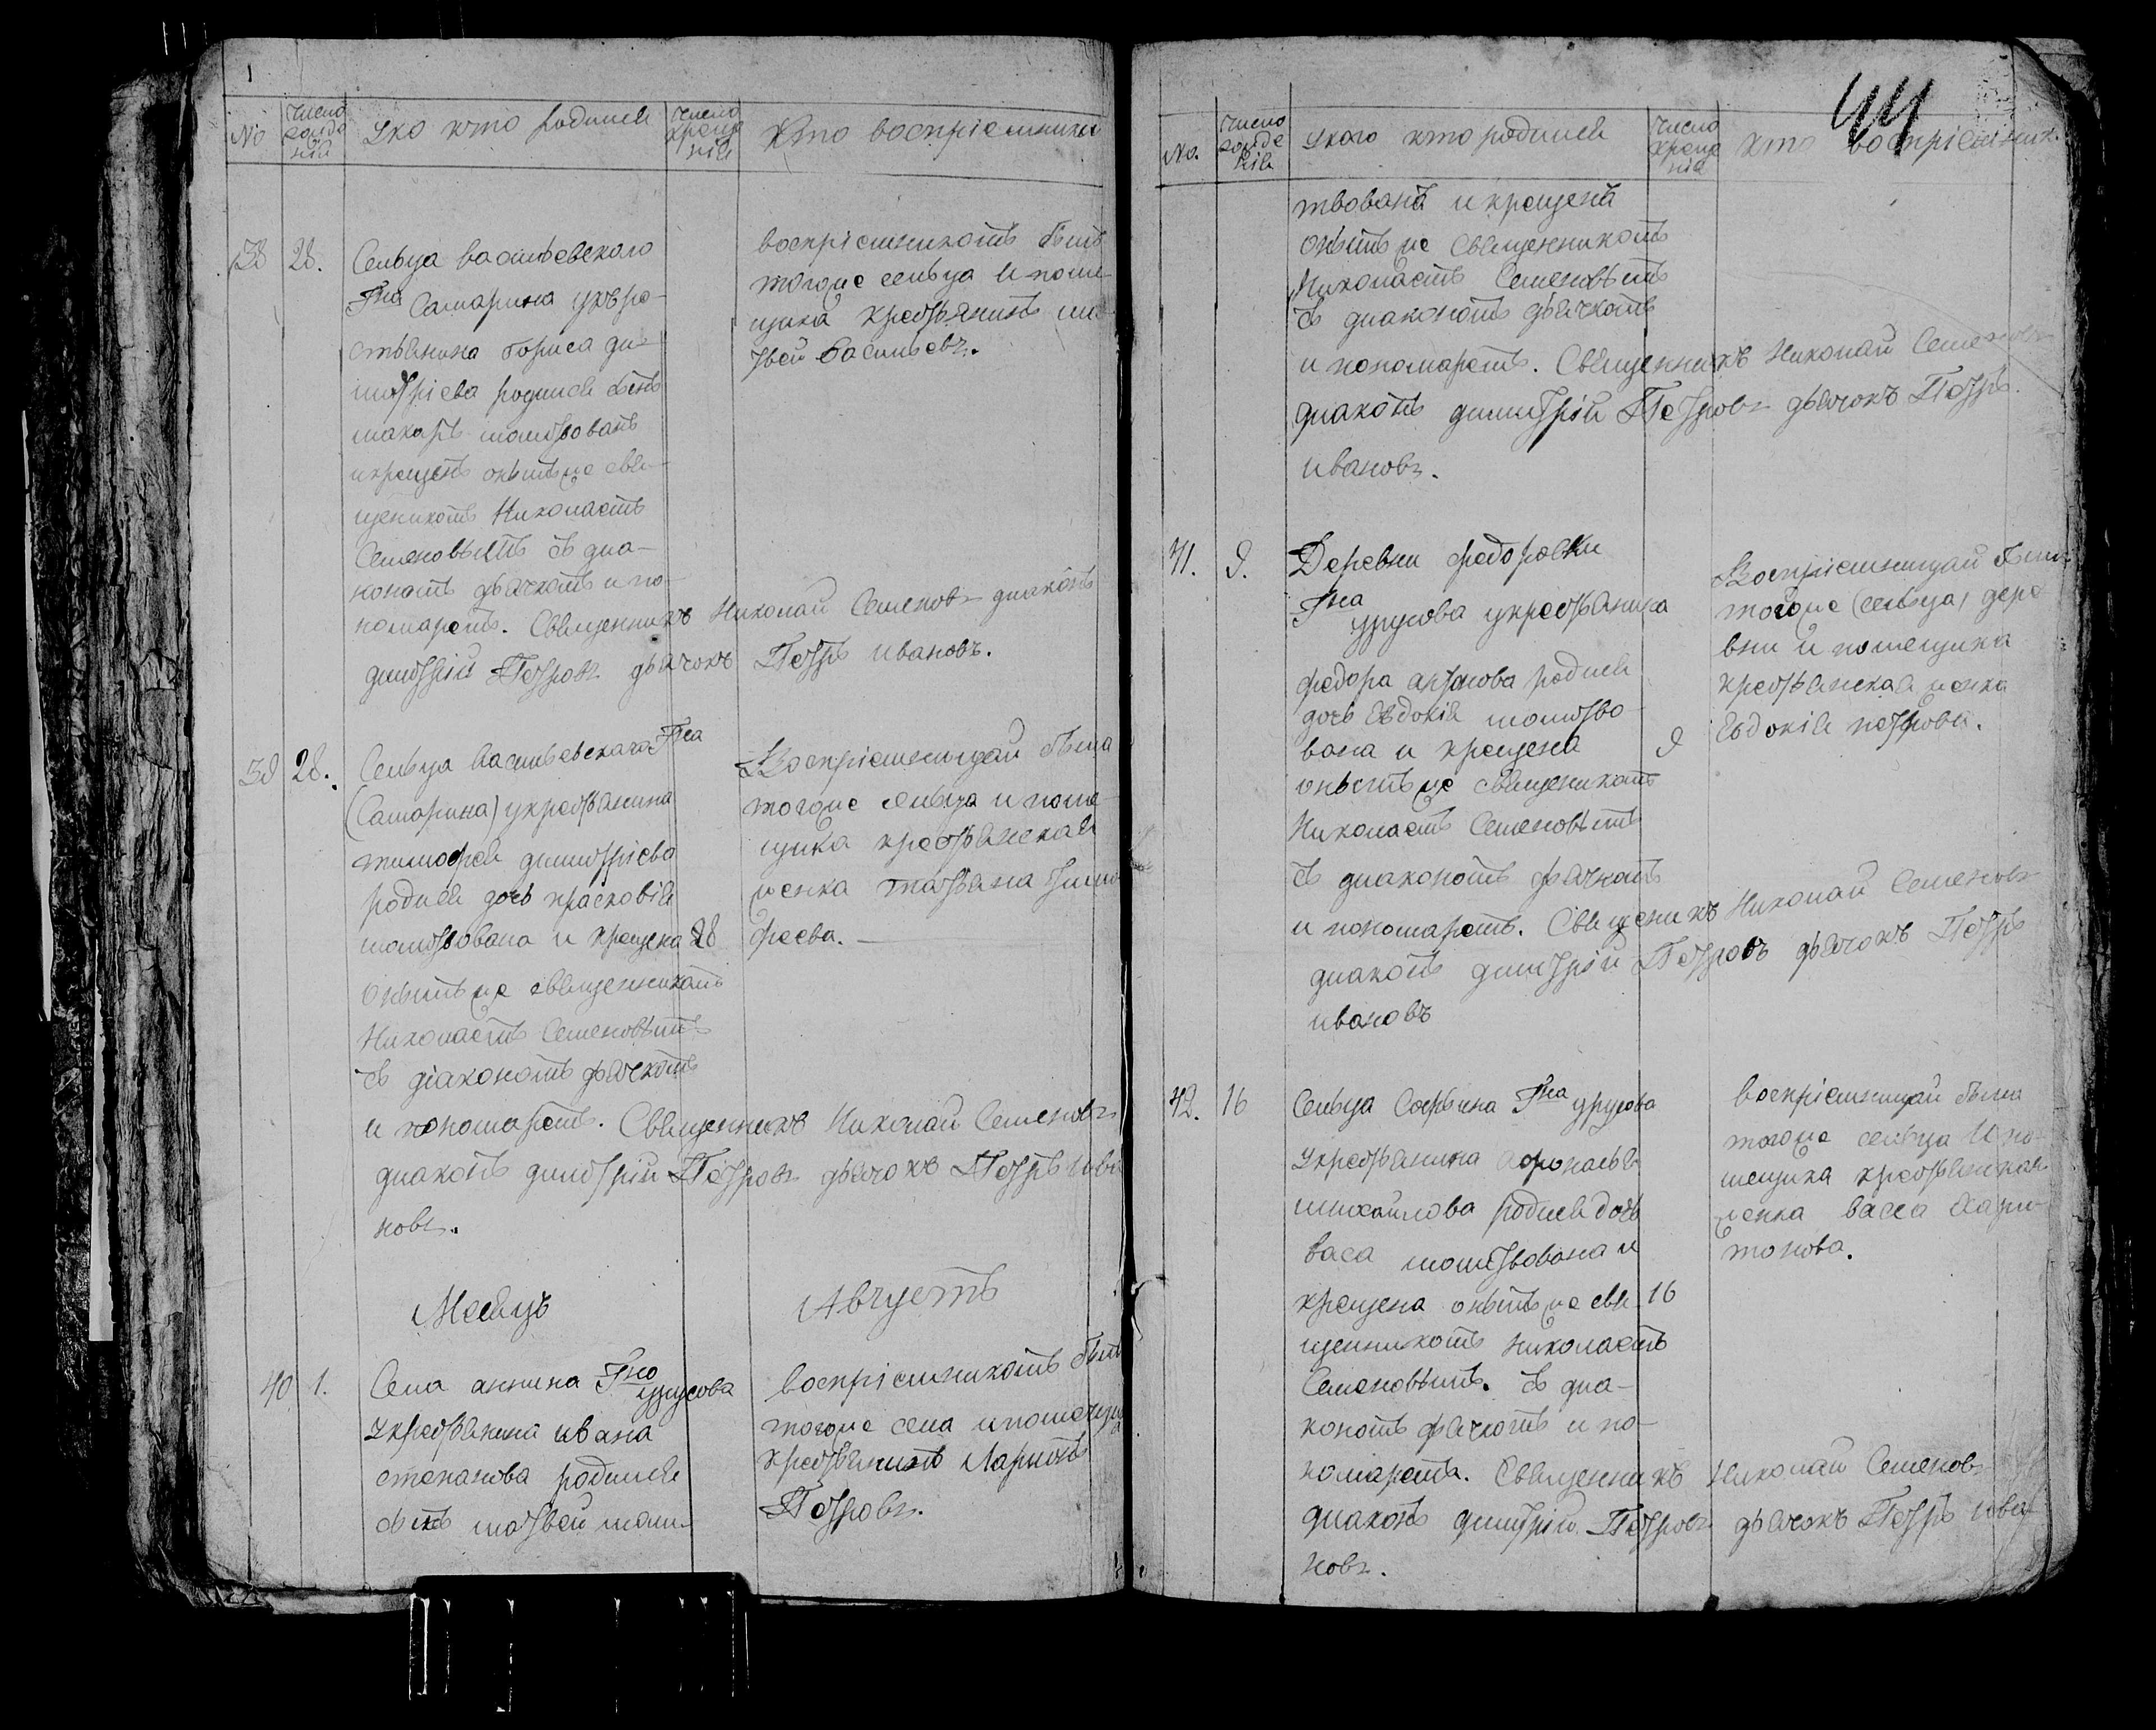 №
число рожде нія
У ко кто родился
число креще нія
Кто воспріемники
38 28. Сельца васильевского
Гна Самарина укре-
стьянина бориса ди-
митріева родился сынъ
макаръ молитвованъ
и крещенъ онымъ же свя-
щеникомъ Николаемъ
Семеновымъ съ диа-
кономъ дьячкомъ и по-
номаремъ. Священникъ Николай Семеновъ диаконъ
димитрій Петровъ дьячокъ Петръ ивановъ.
воспріемникомъ былъ
тогоже сельца и поме-
щика крестьянинъ
Васильевъ.
39 28. Сельца васильевского Гна
(Самарина) укрестьянина
тимофея димитріева
родися дочь прасковія
молитвована и крещена 28
онымъ же священникомъ
Николаемъ Семеновымъ
съ діакономъ дьячкомъ
и пономаремъ. Священникъ Николай Семеновъ
диаконъ димитрій Петровъ дьячокъ Петръ ива
новъ.
Воспріемницей была
тогоже сельца и поме-
щика крестьянская
женка татьяна тимо
феева.
Месяцъ Августъ
40 1. Села аннина Гна урусова
укрестьянина ивана
степанова родился
сынъ матвей моли-
воспріемникомъ былъ
тогоже села и помещика
крестьянинъ Ларионъ
Петровъ.
44
No.
число рожде нія
Укого кто родился
число креще нія
Кто воспріемник.
твованъ и крещенъ
онымъ же священникомъ
Николаемъ Семеновымъ
съ диакономъ дьячкомъ
и пономаремъ. Священникъ Николай Семеновъ
диаконъ димитрій Петровъ дьячокъ Петръ
ивановъ.
41. 9. Деревни федоровки
Гна урусова укрестьянина
федора родися
дочь Евдокія молитво
вана и крещена 9
онымъ же священикомъ
Николаемъ Семеновымъ
съ диакономъ дьячкомъ
и пономаремъ. Священикъ Николай Семеновъ
диаконъ димитрій Петровъ дьячокъ Петръ
ивановъ
Воспріемницей была
тогоже (сельца) дере
вни и помещика
крестьянская женка
Евдокія петрова.
42. 16 Сельца Гна урусова
укрестьянина афонасья
михайлова родися дочь
васа молитвована и
крещена онымъ же свя 16
щенникомъ Николаемъ
Семеновымъ. съ диа-
кономъ дьячкомъ и по-
номаремъ. Священникъ Николай Семеновъ
диаконъ димитрій Петровъ дьячокъ Петръ ива
новъ.
воспріемницей была
тогоже сельца и по-
мещика крестьянская
женка васса Хари-
тонова.